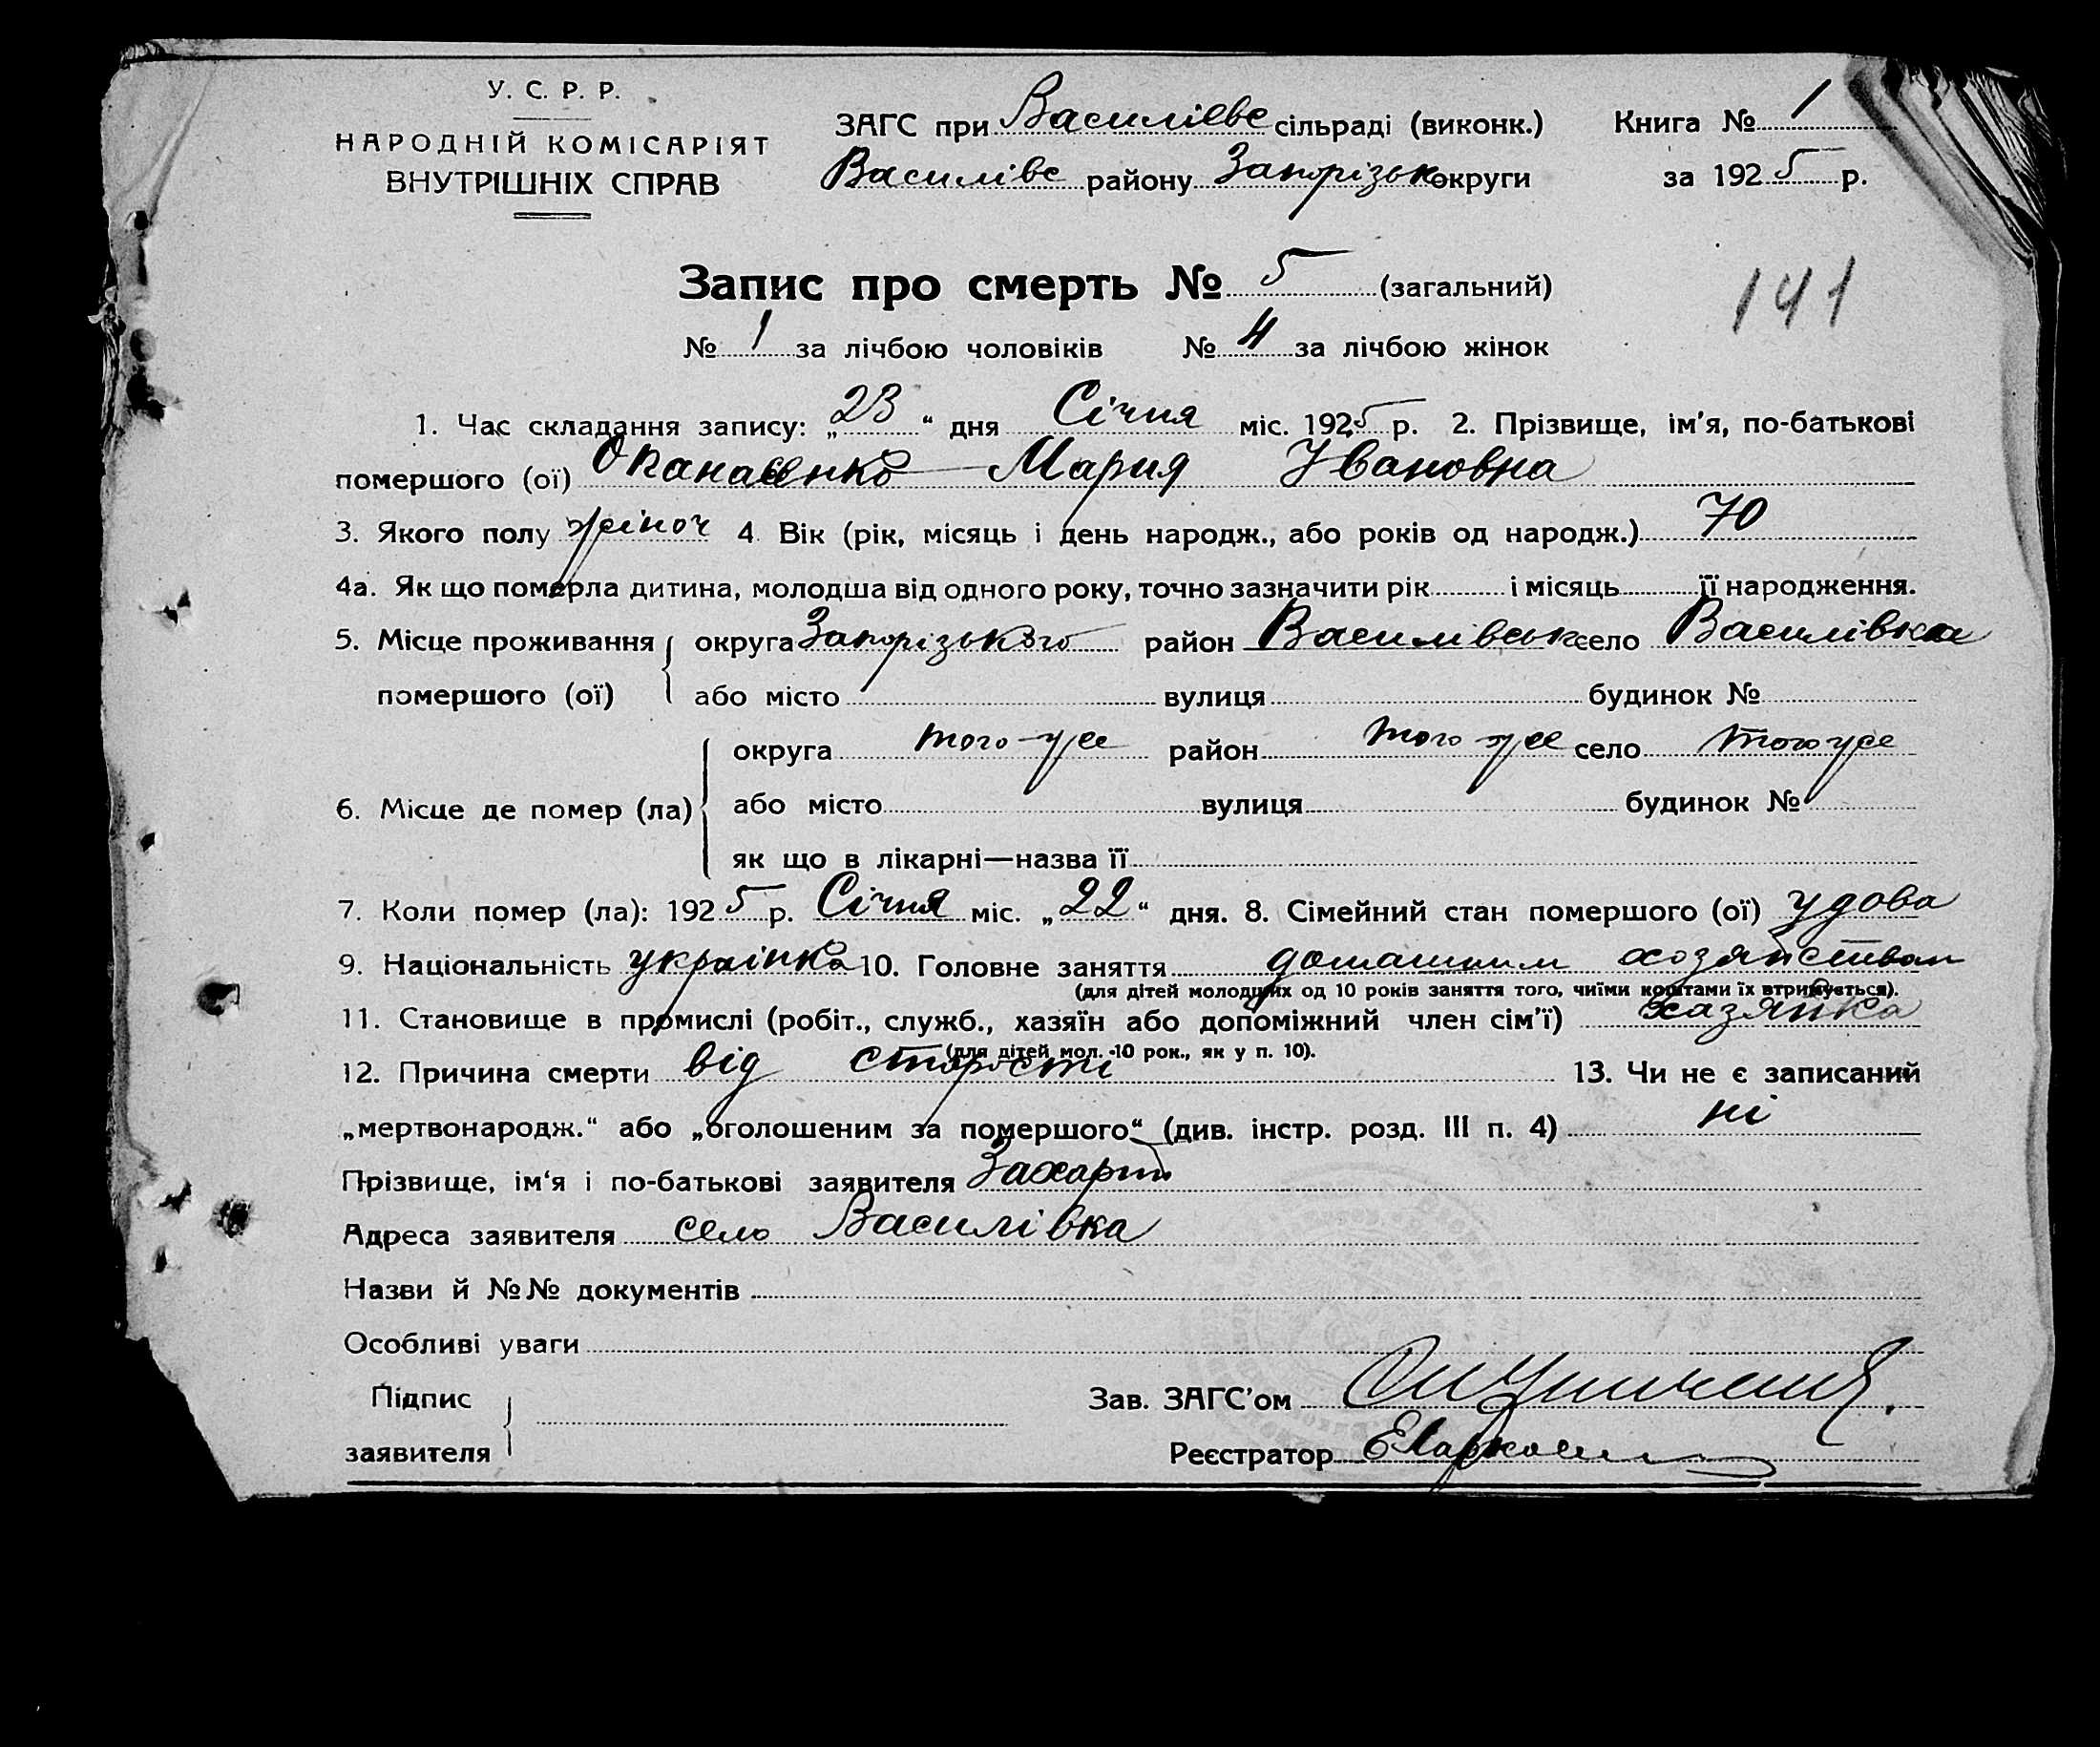 У. С. Р. Р.
НАРОДНІЙ КОМІСАРІЯТ
ВНУТРІШНІХ СПРАВ
ЗАГС при Василівс сільраді (виконк.)
Василівс району Запорізьк округи
Книга № 1
за 1925 р.
Запис про смерть № 5 (загальний)
141
№ 1 за лічбою чоловіків № 4 за лічбою жінок
1. Час складання запису: „23“ дня Січня міс. 1925 р. 2. Прізвище, ім'я, по-батькові
помершого (ої) Мария Івановна
3. Якого полу жіноч 4 Вік (рік, місяць і день народж., або років од народж.) 70
4а. Як що померла дитина, молодша від одного року, точно зазначити рік і місяць її народження.
5. Місце проживання помершого (ої) округа Запорізького район Василівськ село Василівка
або місто вулиця будинок №
6. Місце де помер (ла) округа того-же район того же село того же
або місто вулиця будинок №
як що в лікарні—назва її
7. Коли помер (ла): 1925 р. Січня міс. „22“ дня. 8. Сімейний стан помершого (ої) удова
9. Національність українка 10. Головне заняття домашним хозяйством
(для дітей молодших од 10 років заняття того, чиїми коштами їх втримується).
11. Становище в промислі (робіт., служб., хазяїн або допоміжний член сім'ї) хазяйка
(для дітей мол. 10 рок., як у п. 10).
12. Причина смерти від старости 13. Чи не є записаний
„мертвонародж.“ або „оголошеним за помершого“ (див. інстр. розд. III п. 4) ні
Прізвище, ім'я і по-батькові заявителя
Адреса заявителя село Василівка
Назви й №№ документів
Особливі уваги
Підпис
заявителя
Зав. ЗАГС'ом
Реєстратор